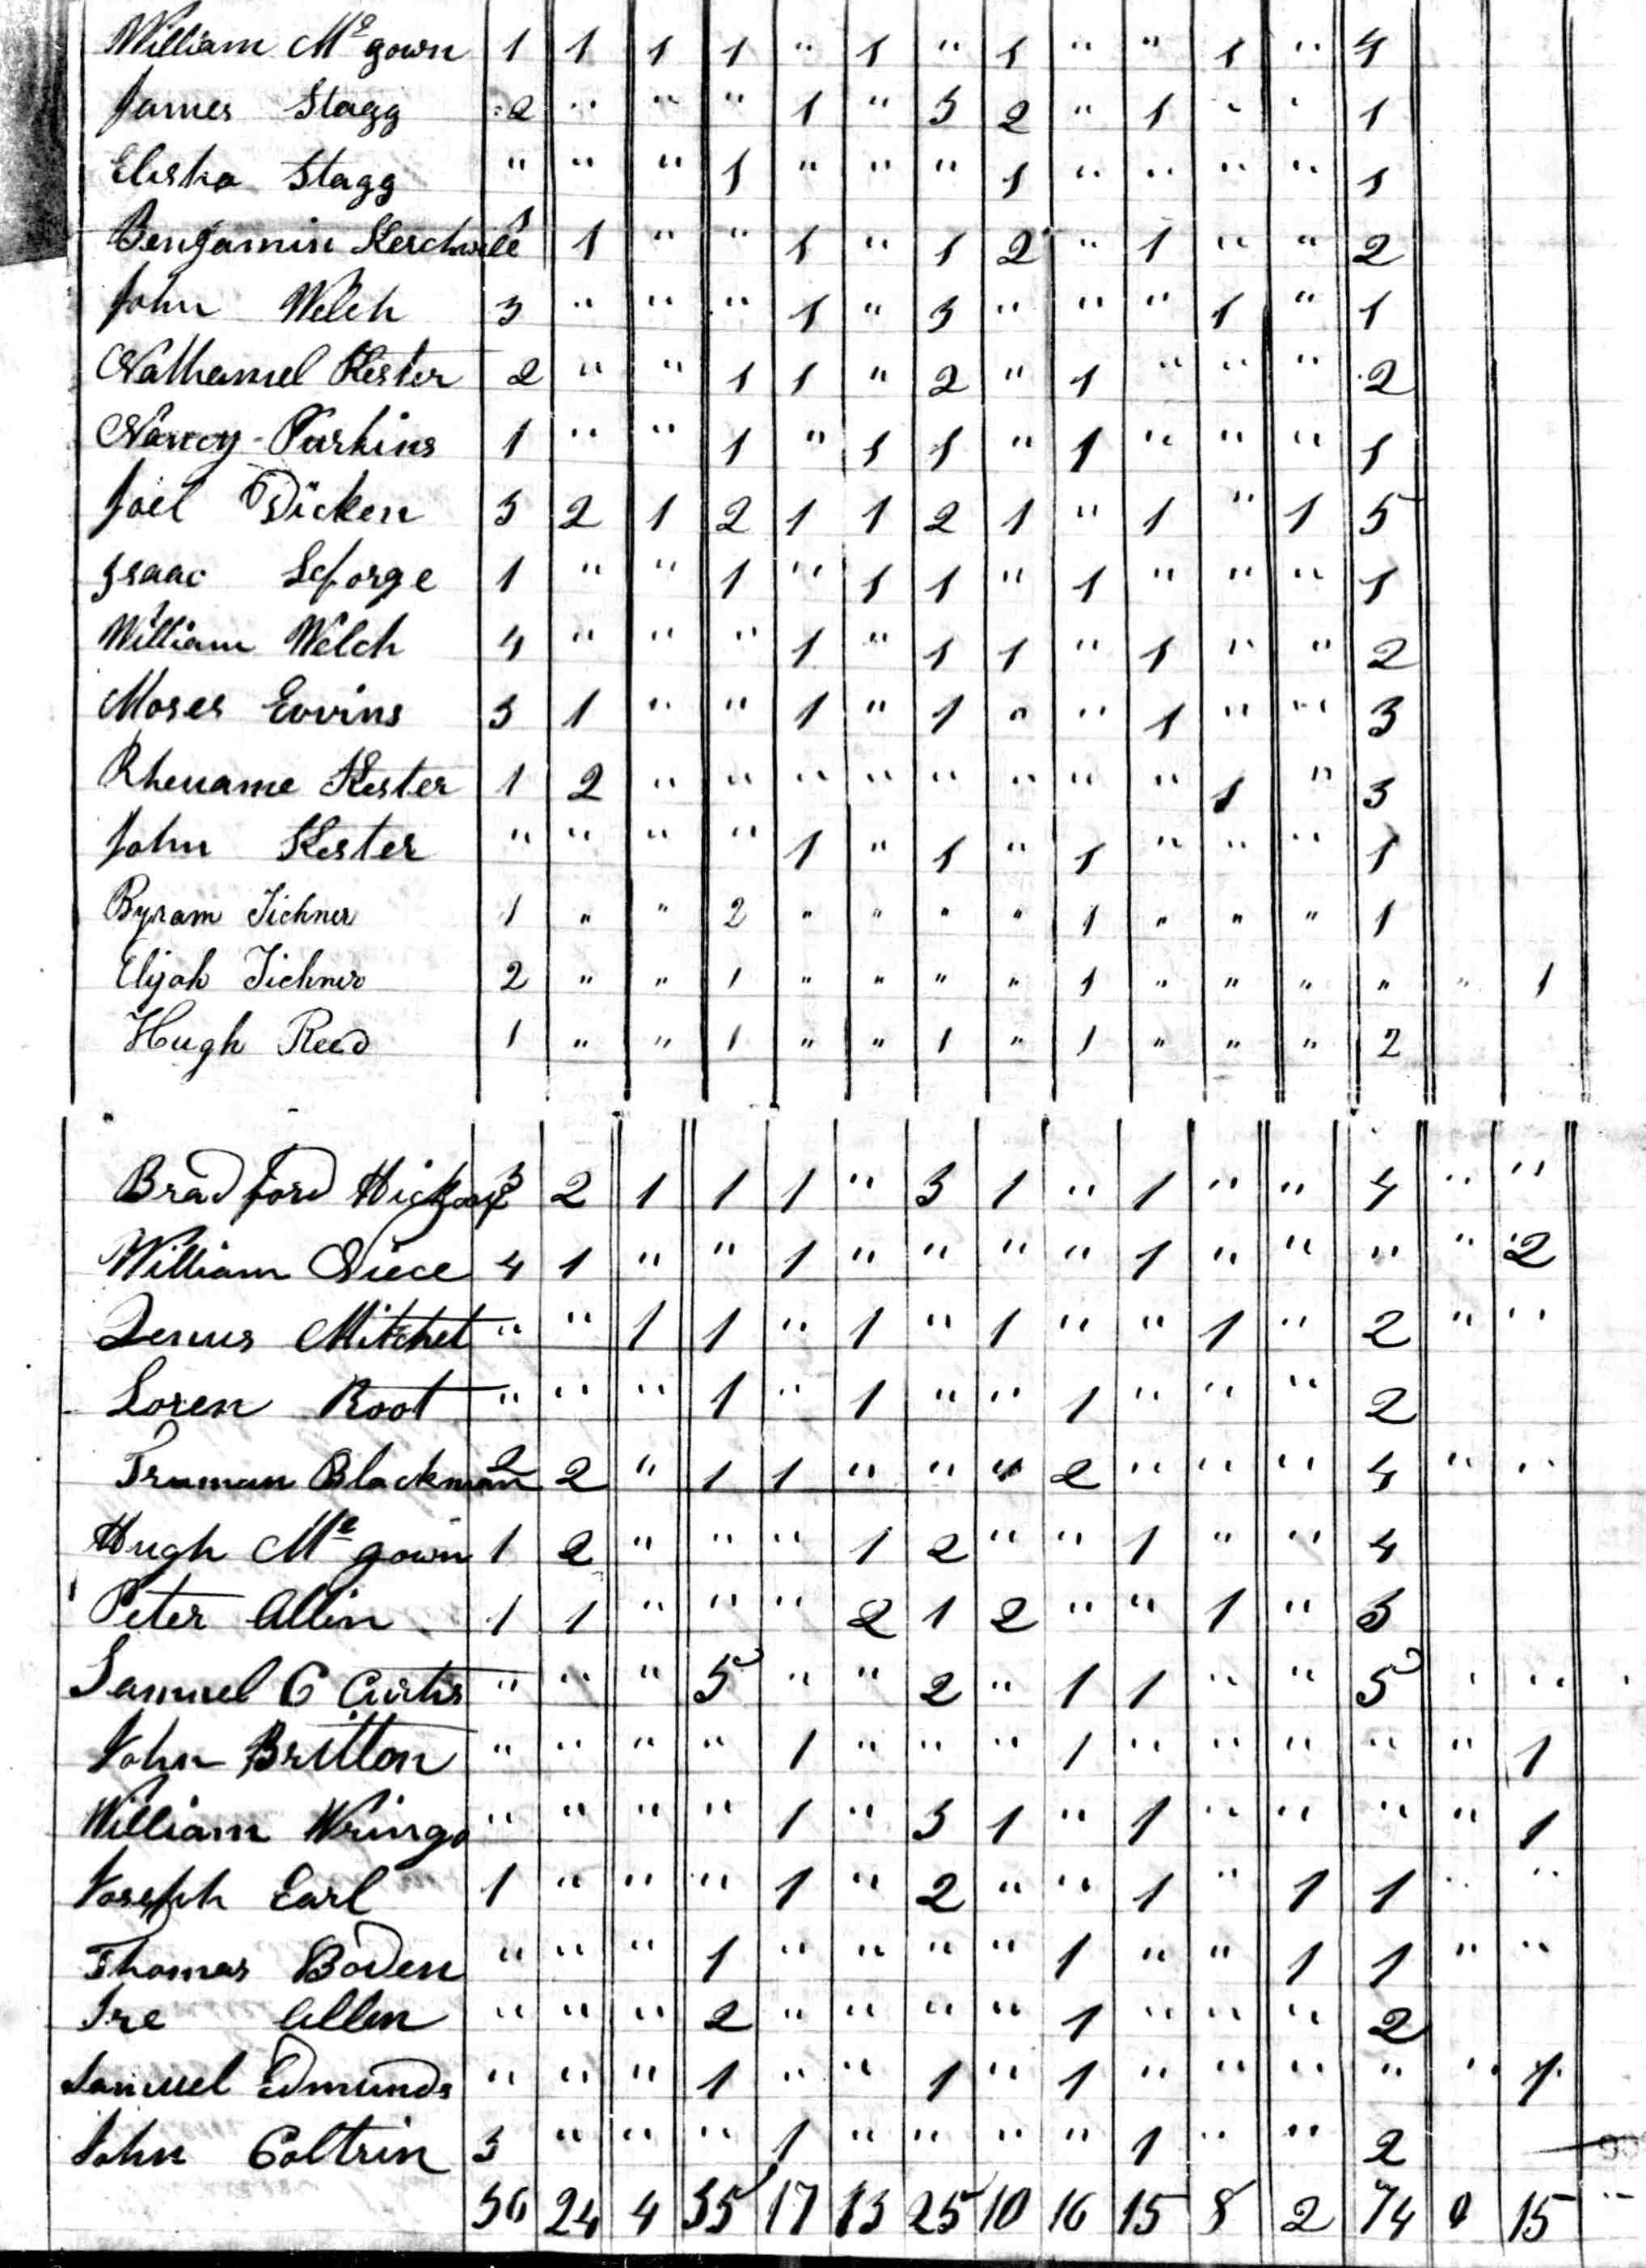 William Mc gown 1 1 1 1 " 1 " 1 " " 1 " 4
James Stagg 2 " " " 1 " 3 2 " 1 " " 1
Elisha Stagg " " " 1 " " " 1 " " " " 1
Benjamin 1 " " 1 " 1 2 " 1 " " 2
John Welch 3 " " " 1 " 3 " " " 1 " 1
Nathaniel Kester 2 " " 1 1 " 2 " 1 " " " 2
Nancy Purkins 1 " " 1 " 1 1 " 1 " " " 1
Joel Dicken 3 2 1 2 1 1 2 1 " 1 " 1 5
Isaac Leforge 1 " " 1 " 1 1 " 1 " " " 1
William Welch 4 " " " 1 " 1 1 " 1 " " 2
Moses Evvins 3 1 " " 1 " 1 " " 1 " " 3
Rheuame Kester 1 2 " " " " " " " " 1 " 3
John Kester " " " " 1 " 1 " 1 " " " 1
Byram Tichner 1 " " 2 " " " " 1 " " " 1
Elijah Tichner 2 " " 1 " " " " 1 " " " " " 1
Hugh Reed 1 " " 1 " " 1 " 1 " " " 2
Bradford Hickox 3 2 1 1 1 " 3 1 " 1 " " 4 " "
William Niece 4 1 " " 1 " " " " 1 " " " " 2
Zenus Mitchel " " 1 1 " 1 " 1 " " 1 " 2 " "
Loren Root " " " 1 " 1 " " 1 " " " 2
Truman Blackman 2 2 " 1 1 " " " 2 " " " 4 " "
Hugh Mc gown 1 2 " " " 1 2 " " 1 " " 4
Peter Allin 1 1 " " " 2 1 2 " " 1 " 3
Samuel C Curtis " " " 5 " " 2 " 1 1 " " 5 " "
John Britton " " " " 1 " " " 1 " " " " " 1
William Wringo " " " " 1 " 3 1 " 1 " " " " 1
Joseph Earl 1 " " " 1 " 2 " " 1 " 1 1 " "
Thomas Boden " " " 1 " " " " 1 " " 1 1 " "
Ire Allen " " " 2 " " " " 1 " " " 2
Samuel Edmunds " " " 1 " " 1 " 1 " " " " " 1
John Coltrin 3 " " " 1 " " " " 1 " " 2
36 24 4 35 17 13 25 10 16 15 8 2 74 0 15 "